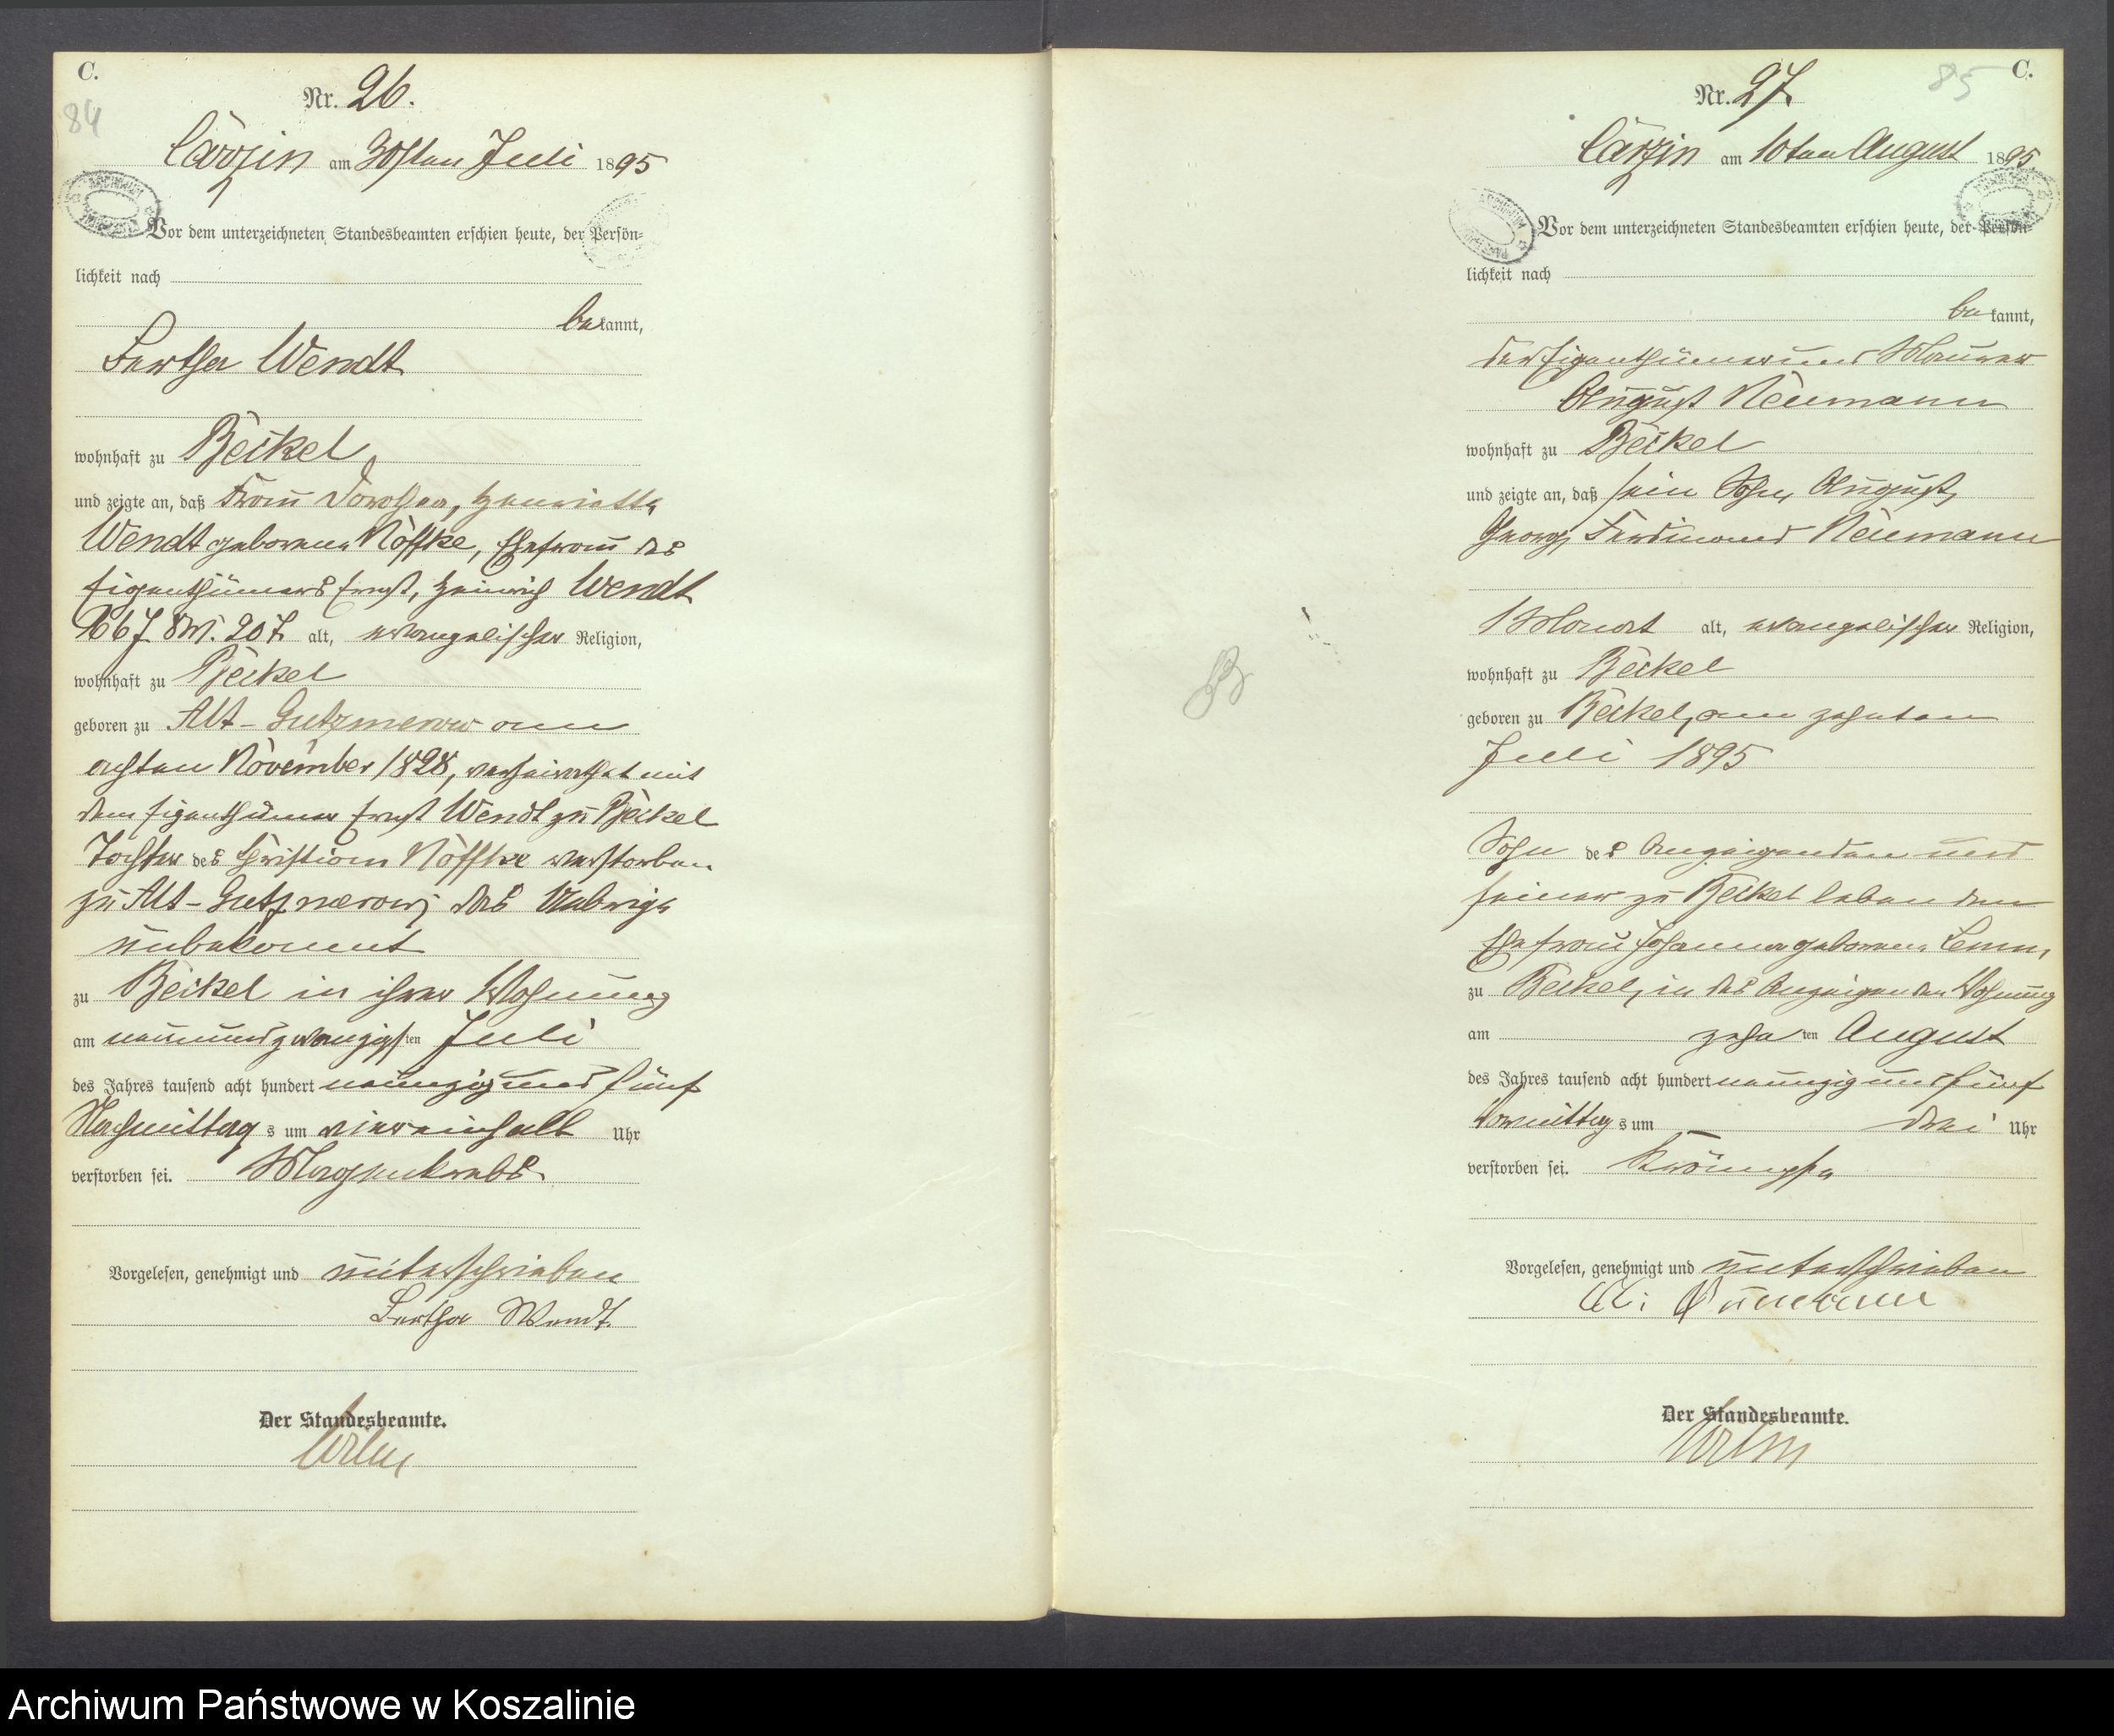 C.
84
Nr. 26.
Carzin am 30sten Juli 1895
Vor dem unterzeichneten Standesbeamten erschien heute, der Persön-
lichkeit nach
bekannt,
Bertha Wendt
wohnhaft zu Beckel
und zeigte an, daß Frau Dorothea, Henriette
Wendt geborene Nöffke, Ehefrau des
Eigenthümers Ernst, Heinrich Wendt
66 J. 8 M. 20 T. alt, evangelischer Religion,
wohnhaft zu Beckel
geboren zu Alt-Gutzmerow am
achten November 1828, verheirathet mit
dem Eigenthümer Ernst Wendt zu Beckel
Tochter des Christian Nöffke verstorben
zu Alt-Gutzmerow; das Uebrige
unbekannt
zu Beckel in ihrer Wohnung
am neunundzwanzigsten Juli
des Jahres tausend acht hundert neunzig und fünf
Nachmittags um viereinhalb Uhr
verstorben sei. Magenkrebs
Vorgelesen, genehmigt und unterschrieben
Bertha Wendt.
Der Standesbeamte.
C.
85
Nr. 27
Carzin am 10ten August 1895
Vor dem unterzeichneten Standesbeamten erschien heute, der Persön-
lichkeit nach
bekannt,
der Eigenthümer und Maurer
August Neumann
wohnhaft zu Beckel
und zeigte an, daß sein Sohn, August,
Georg, Ferdinand Neumann
1 Monat alt, evangelischer Religion,
wohnhaft zu Beckel
geboren zu Beckel, am zehnten
Juli 1895
Sohn des Anzeigenden und
seiner zu Beckel lebenden
Ehefrau Johanna geborene
zu Beckel, in des Anzeigenden Wohnung
am zehnten August
des Jahres tausend acht hundert neunzig und fünf
Vormittags um drei Uhr
verstorben sei. Krämpfe
Vorgelesen, genehmigt und unterschrieben
A. Neumann
Der Standesbeamte.
Archiwum Państwowe w Koszalinie